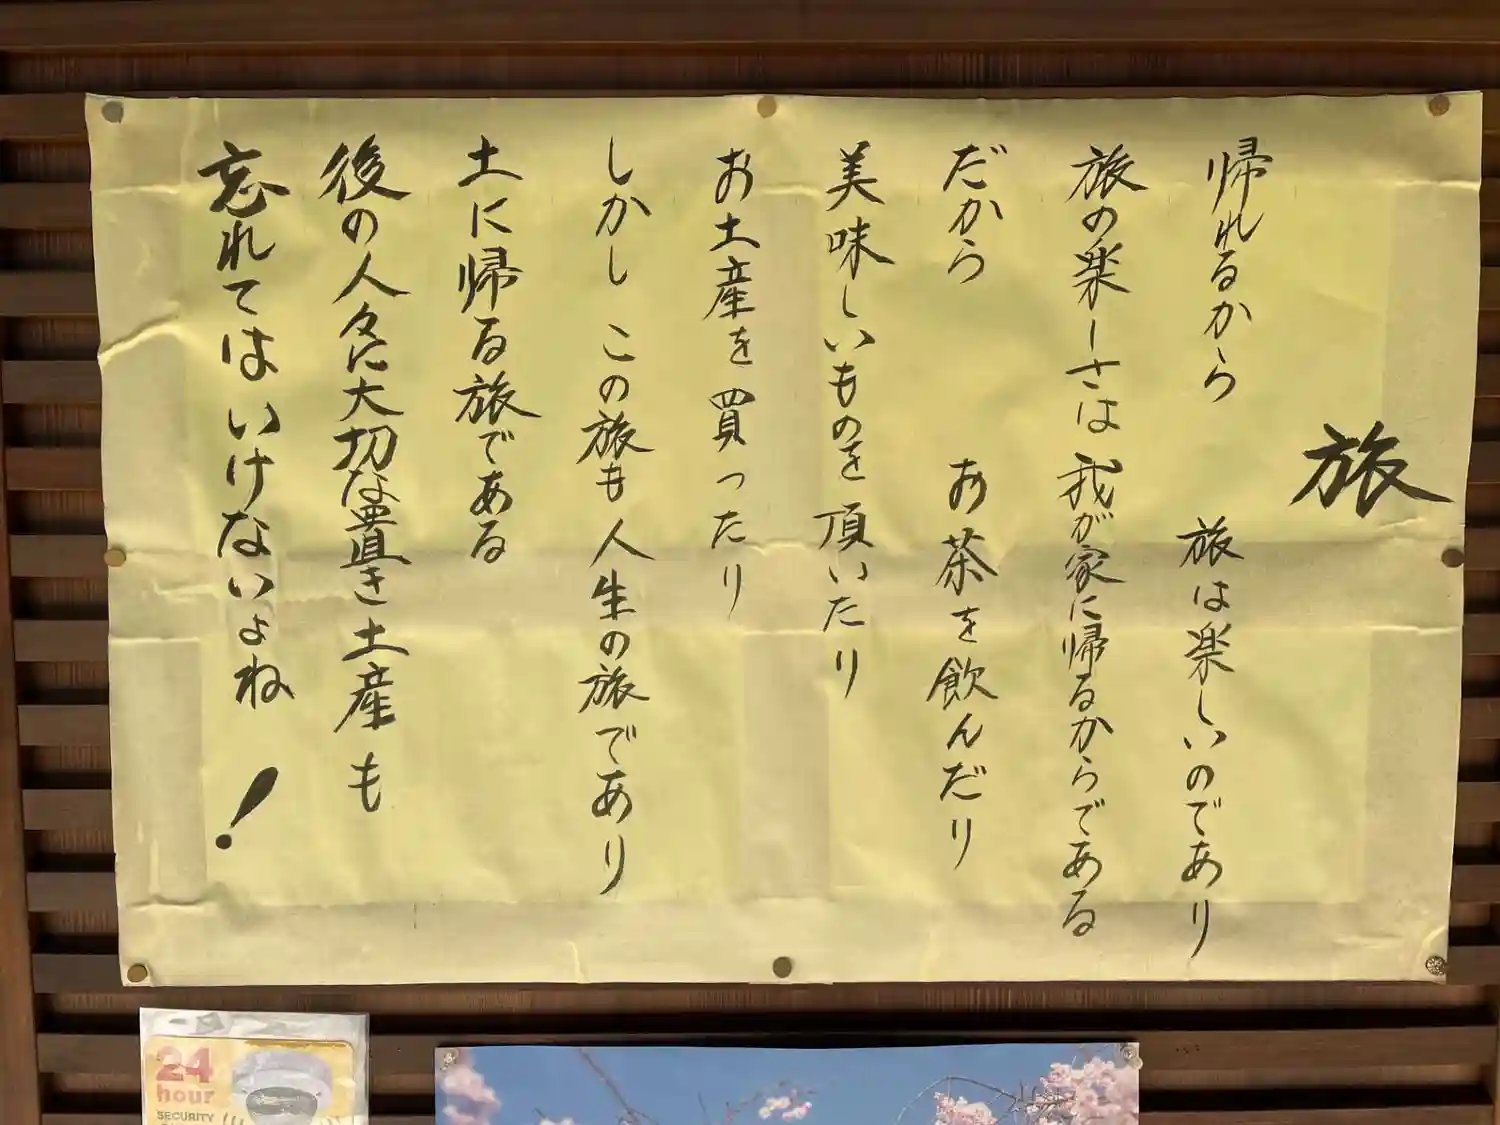 旅
帰れるから 旅は楽しいのであり
旅の楽しさは 我が家に帰るからである
だから お茶を飲んだり
美味しいものを頂いたり
お土産を買ったり
しかし この旅も人生の旅であり
土に帰る旅である
後の人々に大切な置き土産も
忘れてはいけないよね!
24
hour
SECURITY